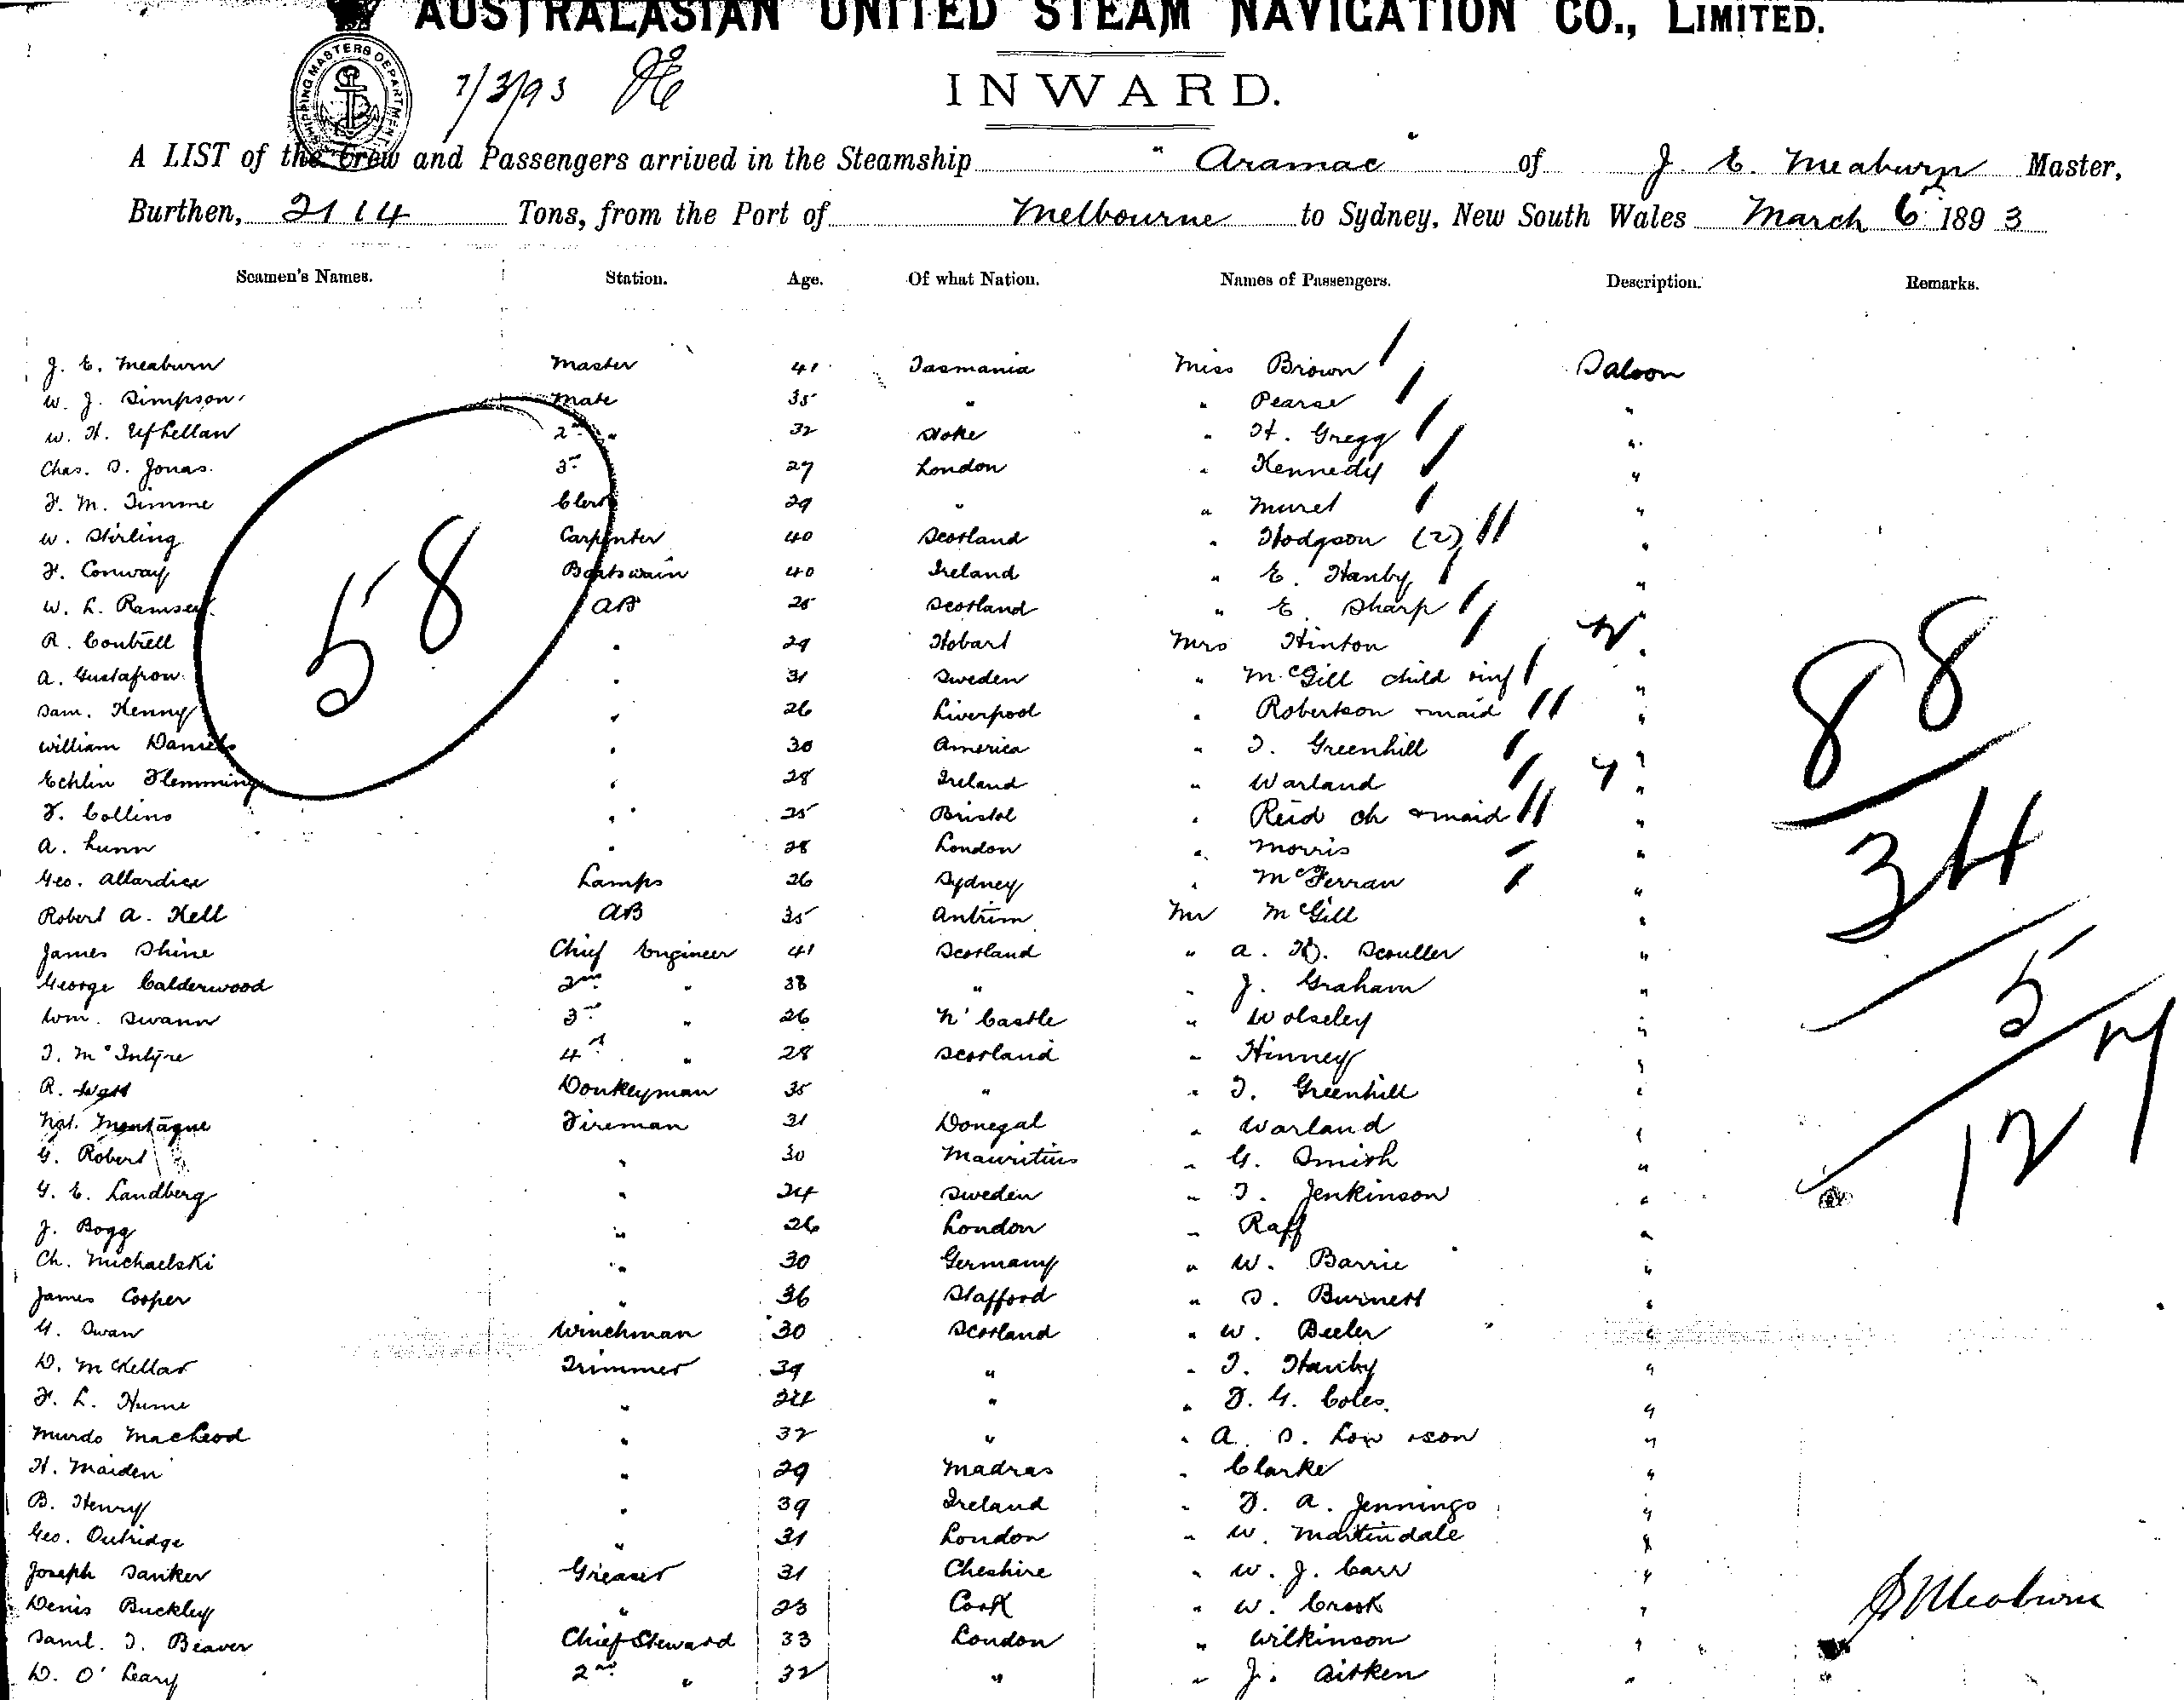 AUSTRALASIAN UNITED STEAM NAVIGATION CO., LIMITED.
SHIPPING MASTERS DEPARTMENT
7/3/93
INWARD.
A LIST of the Crew and Passengers arrived in the Steamship "Aramac" of J. E. Meaburn Master,
Burthen, 2114 Tons, from the Port of Melbourne to Sydney, New South Wales March 6 1893
Seamen's Names. Station. Age. Of what Nation. Names of Passengers. Description. Remarks.
J. E. Meaburn Master 41 Tasmania Miss Brown Saloon
W. J. Simpson Mate 35 " " Pearse "
W. H. 2nd " 32 Stoke " H. Gregg "
Chas. S. Jonas 3rd 27 London " Kennedy "
F. M. Timme Clerk 29 " " Muret "
W. Stirling Carpenter 40 Scotland " Hodgson (2) "
F. Conway Boatswain 40 Ireland " E. Hanby "
W. L. Ramsey AB 25 Scotland " E. Sharp "
R. Contrell " 29 Hobart Mrs Hinton "
A. Gustafson " 31 Sweden " McGill child inf "
Sam. Kenny " 26 Liverpool " Robertson & maid "
William Daniels " 30 America " T. Greenhill "
Echlin Flemming " 28 Ireland " Warland "
F. Collins " 25 Bristol " Reid ch & maid "
A. Lunn " 28 London " Morris "
Geo. Allardice Lamps 26 Sydney " McFerran "
Robert A. Kell AB 35 Antrim Mr McGill "
James Shine Chief Engineer 41 Scotland " A. Scouller "
George Calderwood 2nd " 38 " " J. Graham "
Wm. Swann 3rd " 26 N'Castle " Wolseley "
T. McIntyre 4th " 28 Scotland " Hinney "
R. Watt Donkeyman 35 " " T. Greenhill "
Nat. Montague Fireman 31 Donegal " Warland "
G. Robert " 30 Mauritius " G. Smith "
G. E. Landberg " 24 Sweden " T. Jenkinson "
J. Bogg " 26 London " Raff "
Ch. Michaelski " 30 Germany " W. Barrie "
James Cooper " 36 Stafford " S. Burnett "
G. Swan Winchman 30 Scotland " W. Beeler "
D. McKellar Trimmer 39 " " T. Hanby "
F. L. Hume " 24 " " F. G. Coles "
Murdo MacLeod " 32 " " A. S. "
H. Maiden " 29 Madras " Clarke "
B. Henry " 39 Ireland " F. A. Jennings "
Geo. Outridge " 31 London " W. Martindale "
Joseph Sanker Greaser 31 Cheshire " W. J. Carr "
Denis Buckley " 23 Cork " W. Crook "
Saml. T. Beaver Chief Steward 33 London " Wilkinson "
D. O'Leary 2nd " 32 " " J. Aitken "
58
88
34
5
127
J Meaburn